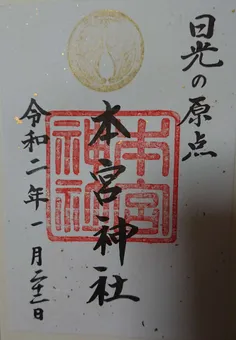 日光の原点
本宮神社
本宮
神社
令和二年一月二十二日